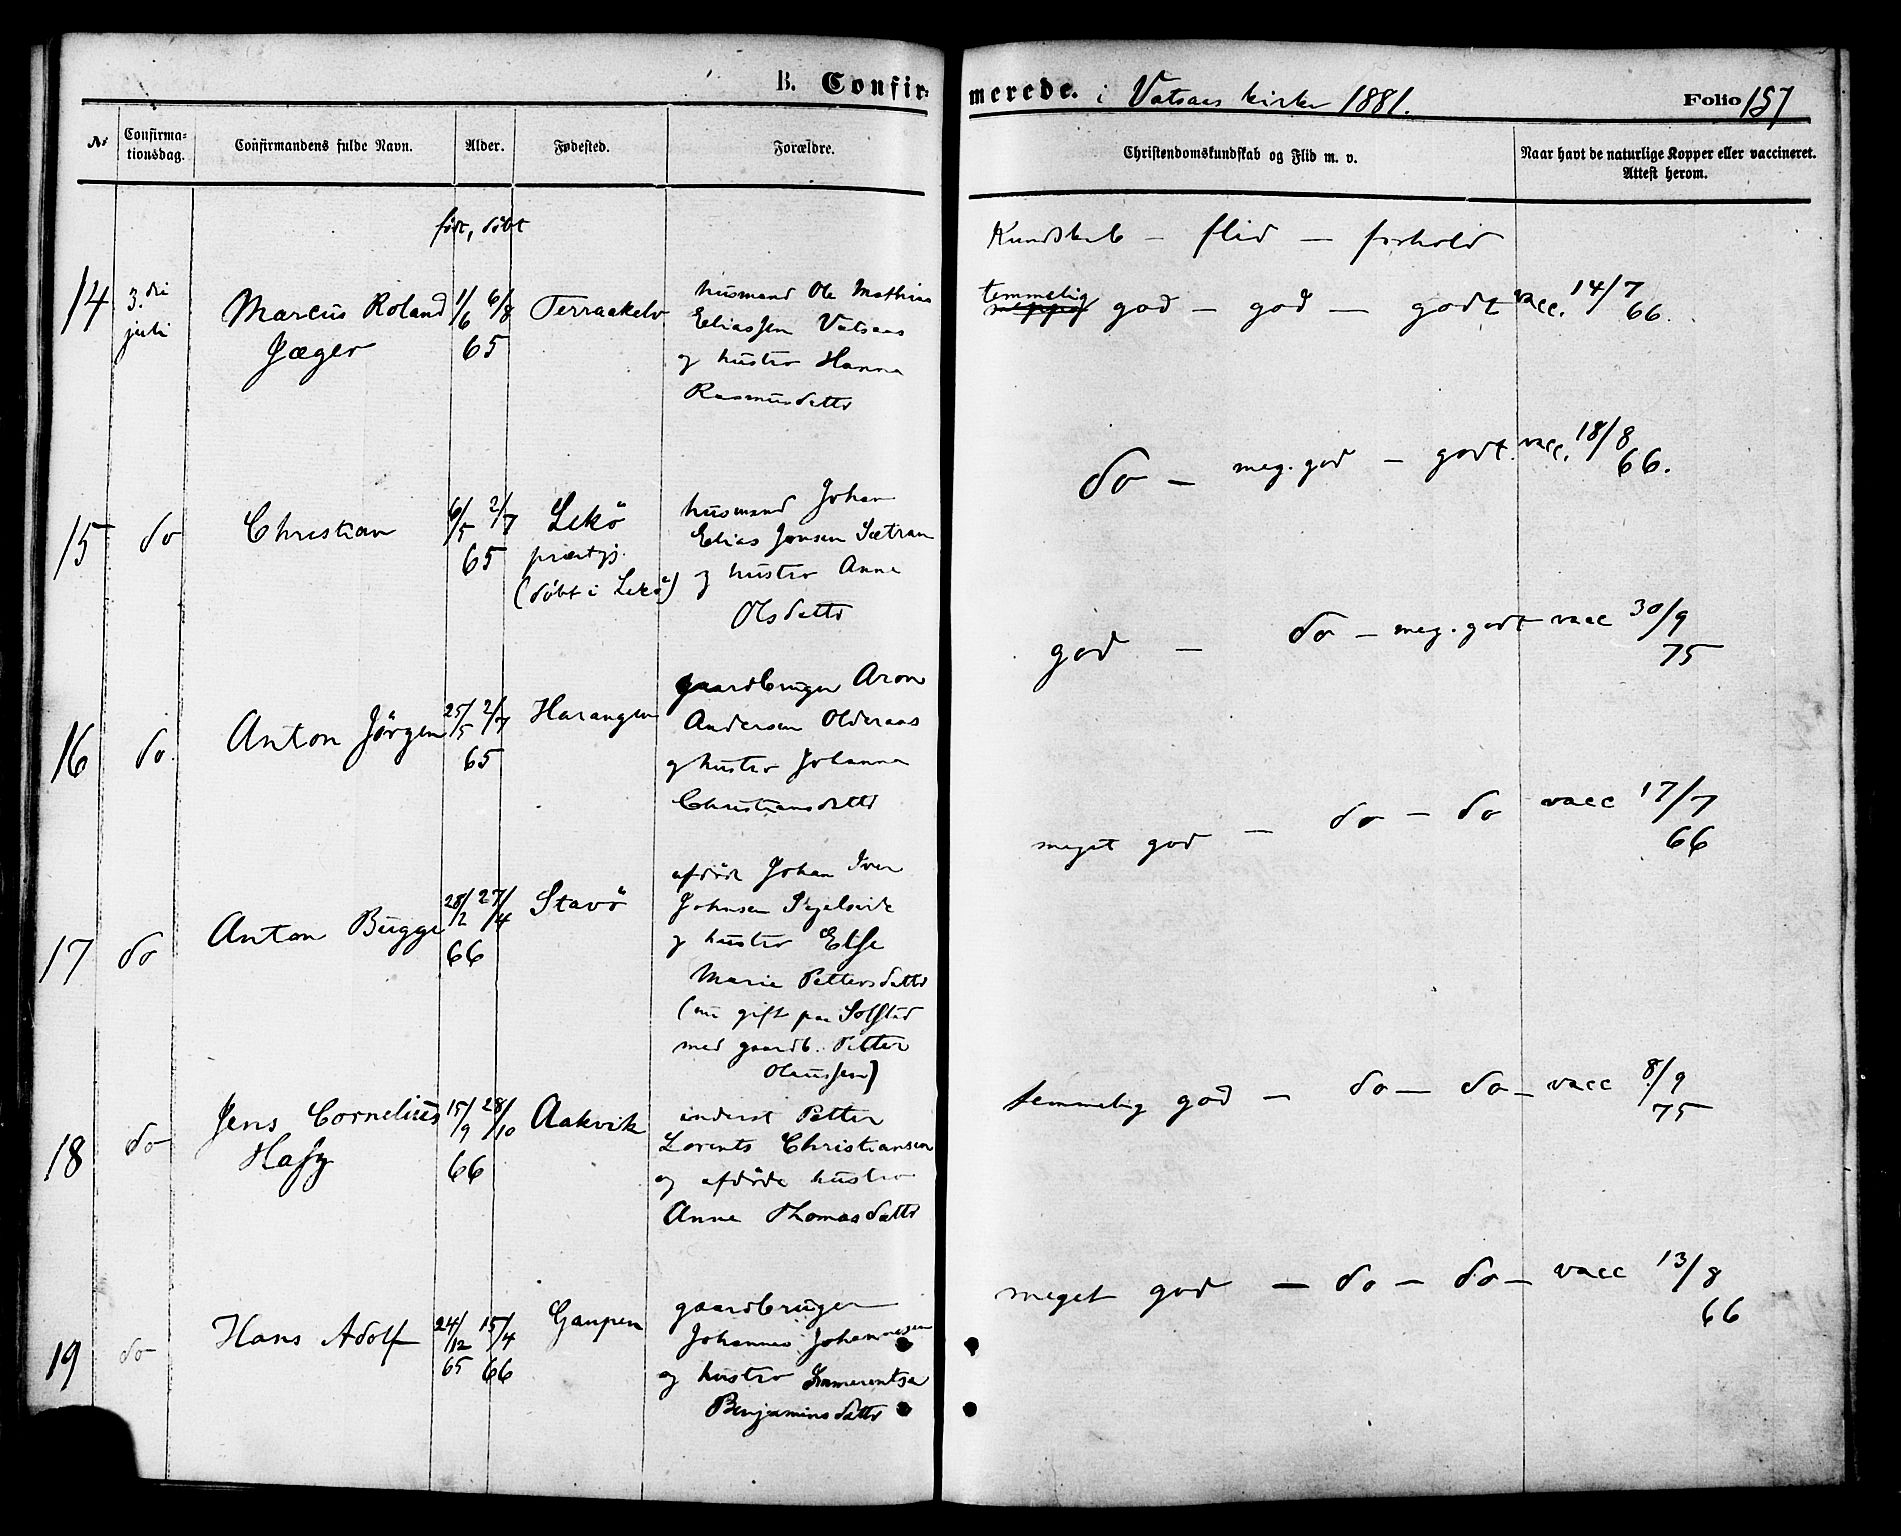 B. Confirmerede. i Vatsaas kirke 1881. Folio 157
No
Confirmationsdag.
Confirmandens fulde Navn.
Alder.
Fødested.
Forældre.
Christendomskundskab og Flid m. v.
Naar havt de naturlige Kopper eller vaccineret.
Attest herom.
født, døbt
Kundskab — flid — forhold
14
3.die
juli
Marcus Roland
Jæger
1/6 6/8
65
Terraakelv
husmand Ole Mathias
Eliassen Vatsaas
og hustro Hanna
Rasmusdattr
temmelig
god — god — godt
vacc. 14/7
66.
15
do
Christian
6/5 2/7
65
Lekö
præstgj.
(döbt i Lekö)
husmand Johan
Elias Jonsen Sætran
og hustro Anne
Olsdattr
do — meg. god — godt.
vacc. 18/8
66.
16
do.
Anton Jörgen
25/5 2/7
65
Harangen
gaardbruger Aron
Andersen Olderaas
og hustro Johanna
Christiansdattr
god — do — meg. godt
vacc 30/9
75
17
do
Anton Bugge
28/2 27/4
66
Stavö
afdöde Johan Iver
Johnsen Skjelvik
og hustro Else
Marie Pettersdattr
(nu gift paa Solstad
med gaardb. Petter
Olaussen)
meget god — do — do
vacc 17/7
66
18
do
Jens Cornelius
Hafg
15/9 28/10
66
Aakvik
inderst Petter
Lorents Christiansen
og afdöde hustro
Anne Thomasdattr
temmelig god — do — do —
vacc 8/9
75
19
do
Hans Adolf
24/12 15/4
65 66
Gaupen
gaardbruger
Johannes Johannesen
og hustro
Benjaminsdattr
meget god — do — do —
vacc 13/8
66